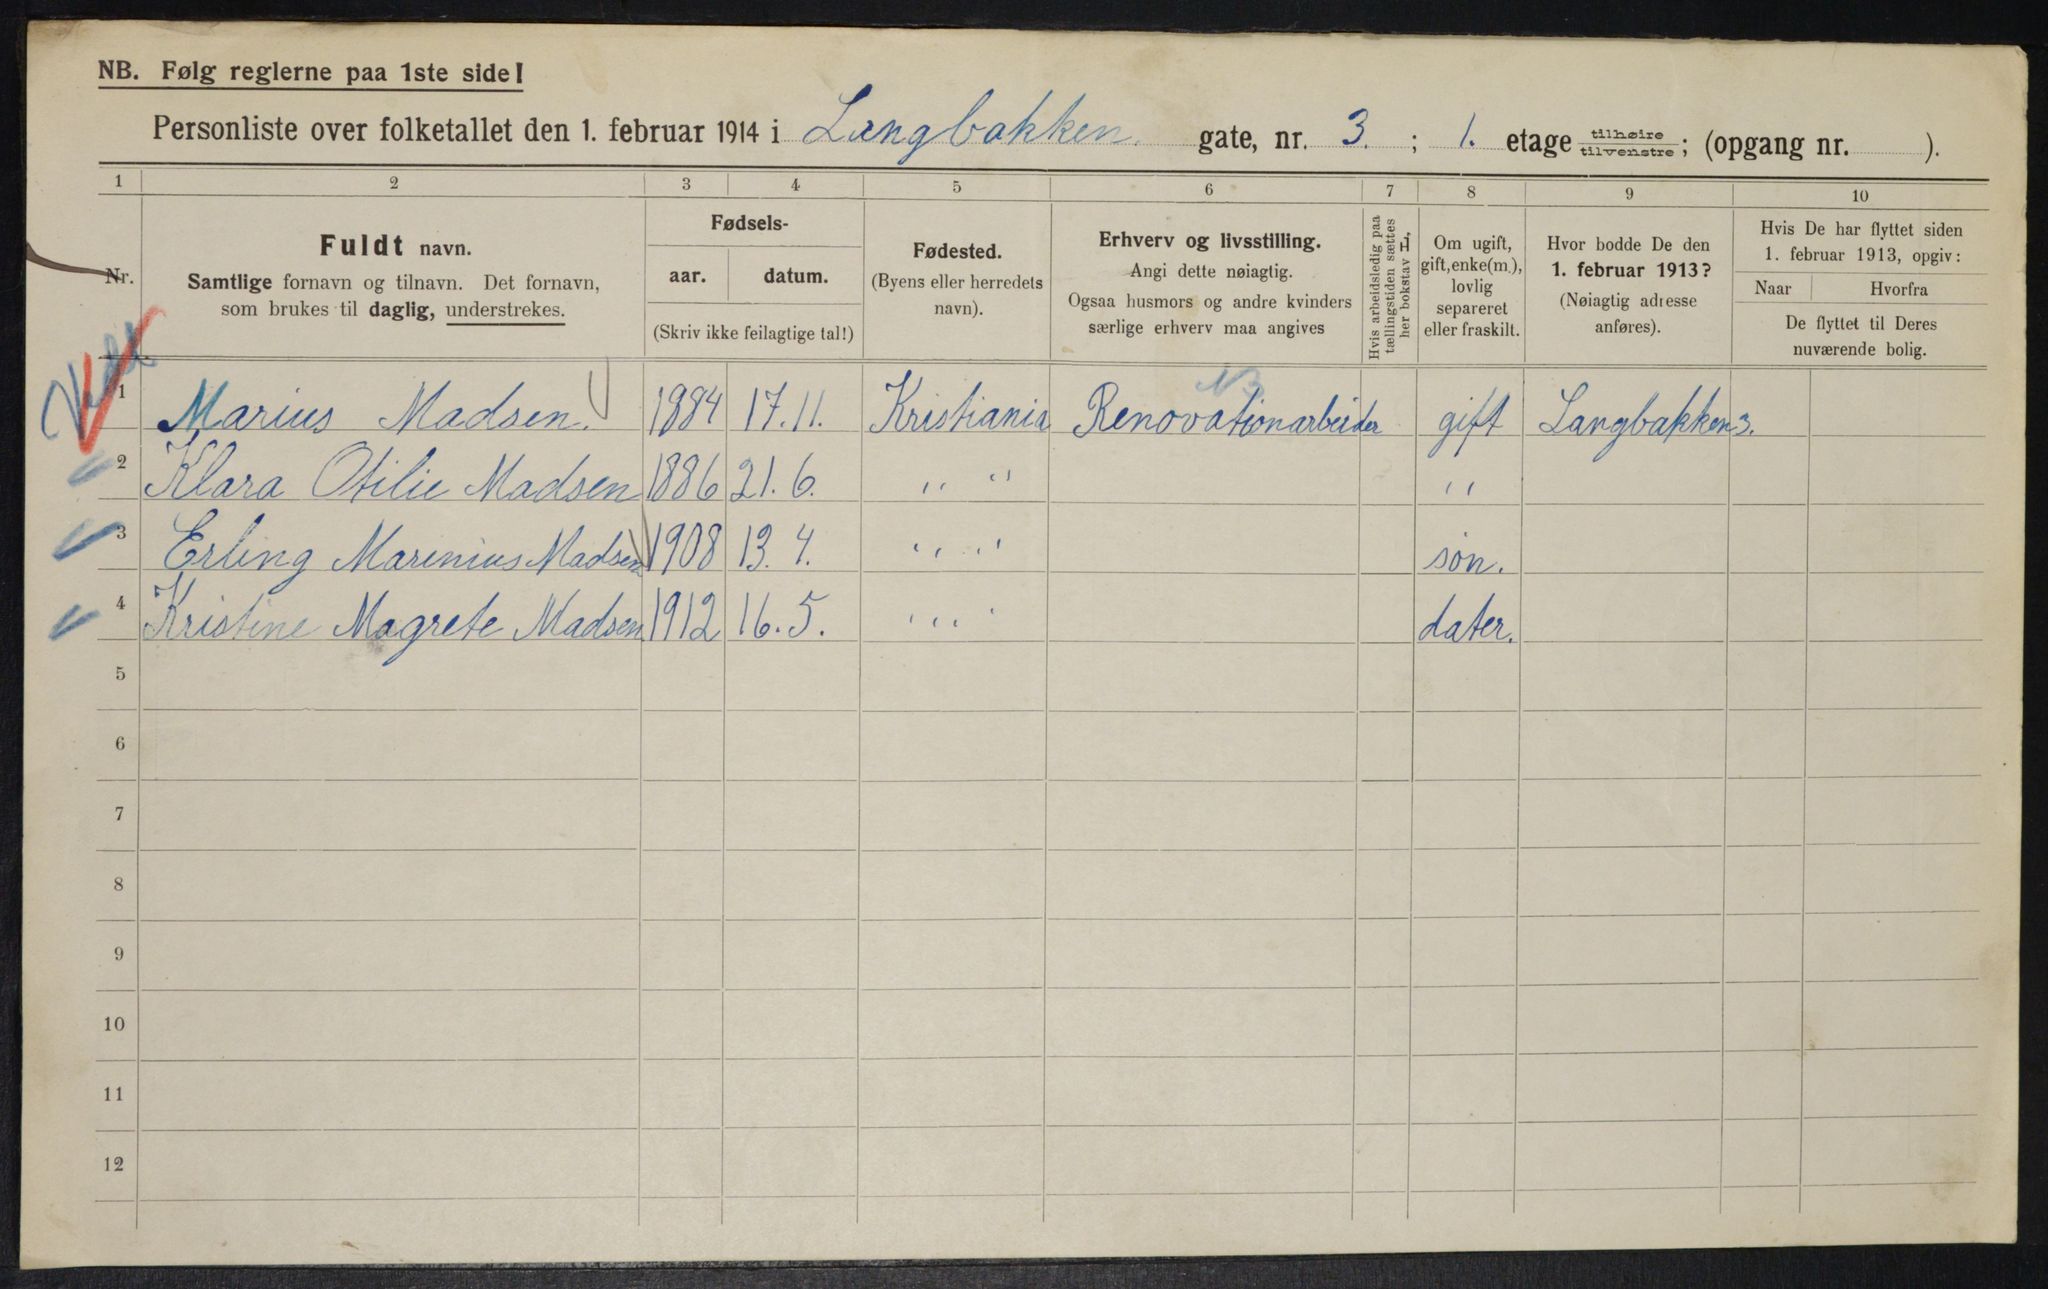 NB. Følg reglerne paa 1ste side!
Personliste over folketallet den 1. februar 1914 i Langbakken. gate, nr. 3. ; 1. etage tilhøire tilvenstre; (opgang nr. ).
1 2 3 4 5 6 7 8 9 10
Nr.
Fuldt navn.
Samtlige fornavn og tilnavn. Det fornavn,
som brukes til daglig, understrekes.
Fødsels-
aar. datum.
(Skriv ikke feilagtige tal!)
Fødested.
(Byens eller herredets
navn).
Erhverv og livsstilling.
Angi dette nøiagtig.
Ogsaa husmors og andre kvinders
særlige erhverv maa angives
Hvis arbeidsledig paa
tællingstiden sættes
her bokstav L,
Om ugift,
gift, enke(m.),
lovlig
separeret
eller fraskilt.
Hvor bodde De den
1. februar 1913?
(Nøiagtig adresse
anføres).
Hvis De har flyttet siden
1. februar 1913, opgiv:
Naar Hvorfra
De flyttet til Deres
nuværende bolig.
1 Marius Madsen. 1884 17.11. Kristiania Renovationarbeider gift Langbakken 3.
2 Klara Otilie Madsen 1886 21.6. " " "
3 Erling Marinius Madsen 1908 13.4. " " søn.
4 Kristine Magrete Madsen 1912 16.5. " " dater.
5
6
7
8
9
10
11
12